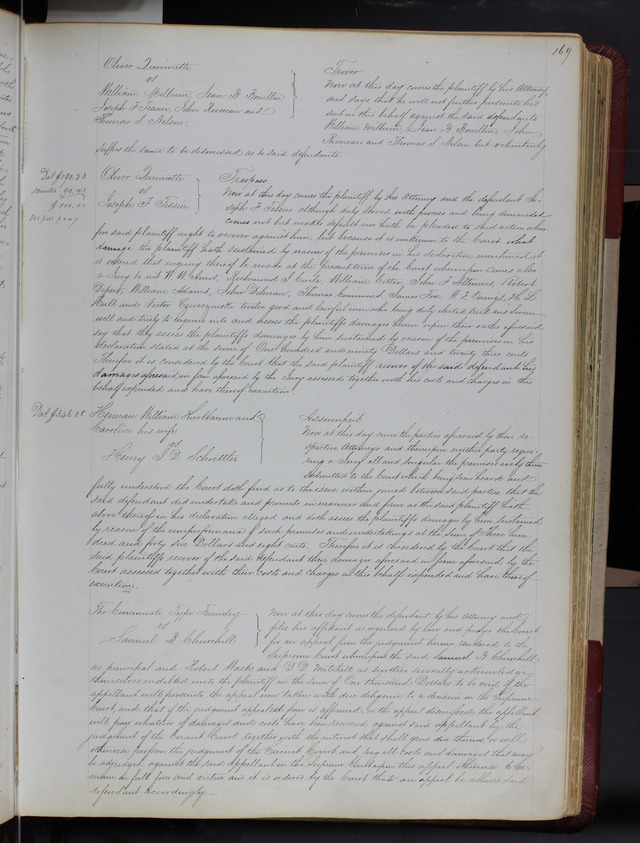 169
Oliver Quinnette
vs
William Milburn, Jean B Bouillon
Joseph F Tessier, John Riveneau and
Thomas I Nelson
Trover
Now at this day comes the plaintiff by his Attorney
and says that he will not further prosecute his
suit in this behalf against the said defendants
William Milburn, Jean B Bouillon, John
and Thomas I Nelson but voluntarily
suffers the same to be dismissed as to said defendants.
Oliver Quinnette
vs
Joseph F Tessier
Trespass
Now at this day comes the plaintiff by his Attorney and the defendant Jo-
seph F Tessier although duly served with process and being demanded
comes not but makes default nor hath he pleaded to said action where-
fore said plaintiff ought to recover against him, but because it is unknown to the Court what
damage the plaintiff hath sustained by reason of the premises in his declaration mentioned it
is ordered that inquiry thereof be made at the present term of the Court whereupon comes also
a Jury to wit William Cotter, John F Robert
William Adams, John Thomas James
Hull and twelve good and lawful men who being duly elected tried and sworn
well and truly to inquire into and assess the plaintiffs damages herein upon their oaths aforesaid
say that they assess the plaintiffs damages by him sustained by reason of the premises in his
declaration stated at the sum of One hundred and ninety Dollars and twenty three cents
Therefore it is considered by the Court that the said plaintiff recover of the said defendant his
damages aforesaid in form aforesaid by the Jury assessed together with his costs and charges in this
behalf expended and have thereof execution
Dat $346.08
Herman William and
Caroline his wife
vs
Henry I. D. Schuettler
Assumpsit
Now at this day come the parties aforesaid by their re-
spective Attorneys and thereupon neither party requir-
ing a Jury all and singular the premises are by them
submitted to the Court which being seen heard and
fully understood the Court doth find as to the issue within joined between said parties that the
said defendant did undertake and promise in manner and form as the said plaintiff hath
above thereof in his declaration alleged and doth assess the plaintiffs damages by him sustained
by reason of the nonperformance of such promises and undertakings at the sum of Three hun-
dred and forty six Dollars and eight cents. Therefore it is considered by the Court that the
said plaintiffs recover of the said defendant their damages aforesaid in form aforesaid by the
Court assessed together with their costs and charges in this behalf expended and have thereof
execution.
The Cincinnati Type Foundry
vs
Samuel B Churchill
Now at this day comes the defendant by his Attorney and
files his affidavit as required by law and prays the Court
for an appeal from the judgment herein rendered to the
Supreme Court whereupon the said Samuel B Churchill
as principal and Robert Wash and D D Mitchell as sureties severally acknowledge
themselves indebted unto the plaintiff in the sum of One thousand Dollars to be void if the
appellant will prosecute the appeal now taken with due diligence to a decision in the Supreme
Court, and that if the judgment appealed from is affirmed, or the appeal dismissed the appellant
will pay whatever of damages and costs have been recovered against said appellant by the
judgment of the Circuit Court together with the interest that shall grow due thereon, or will
otherwise perform the judgment of the Circuit Court and pay all Costs and damages that may
be adjudged against the said appellant in the Supreme Court upon this appeal otherwise to re-
main in full force and virtue and it is ordered by the Court that an appeal be allowed said
defendant accordingly —